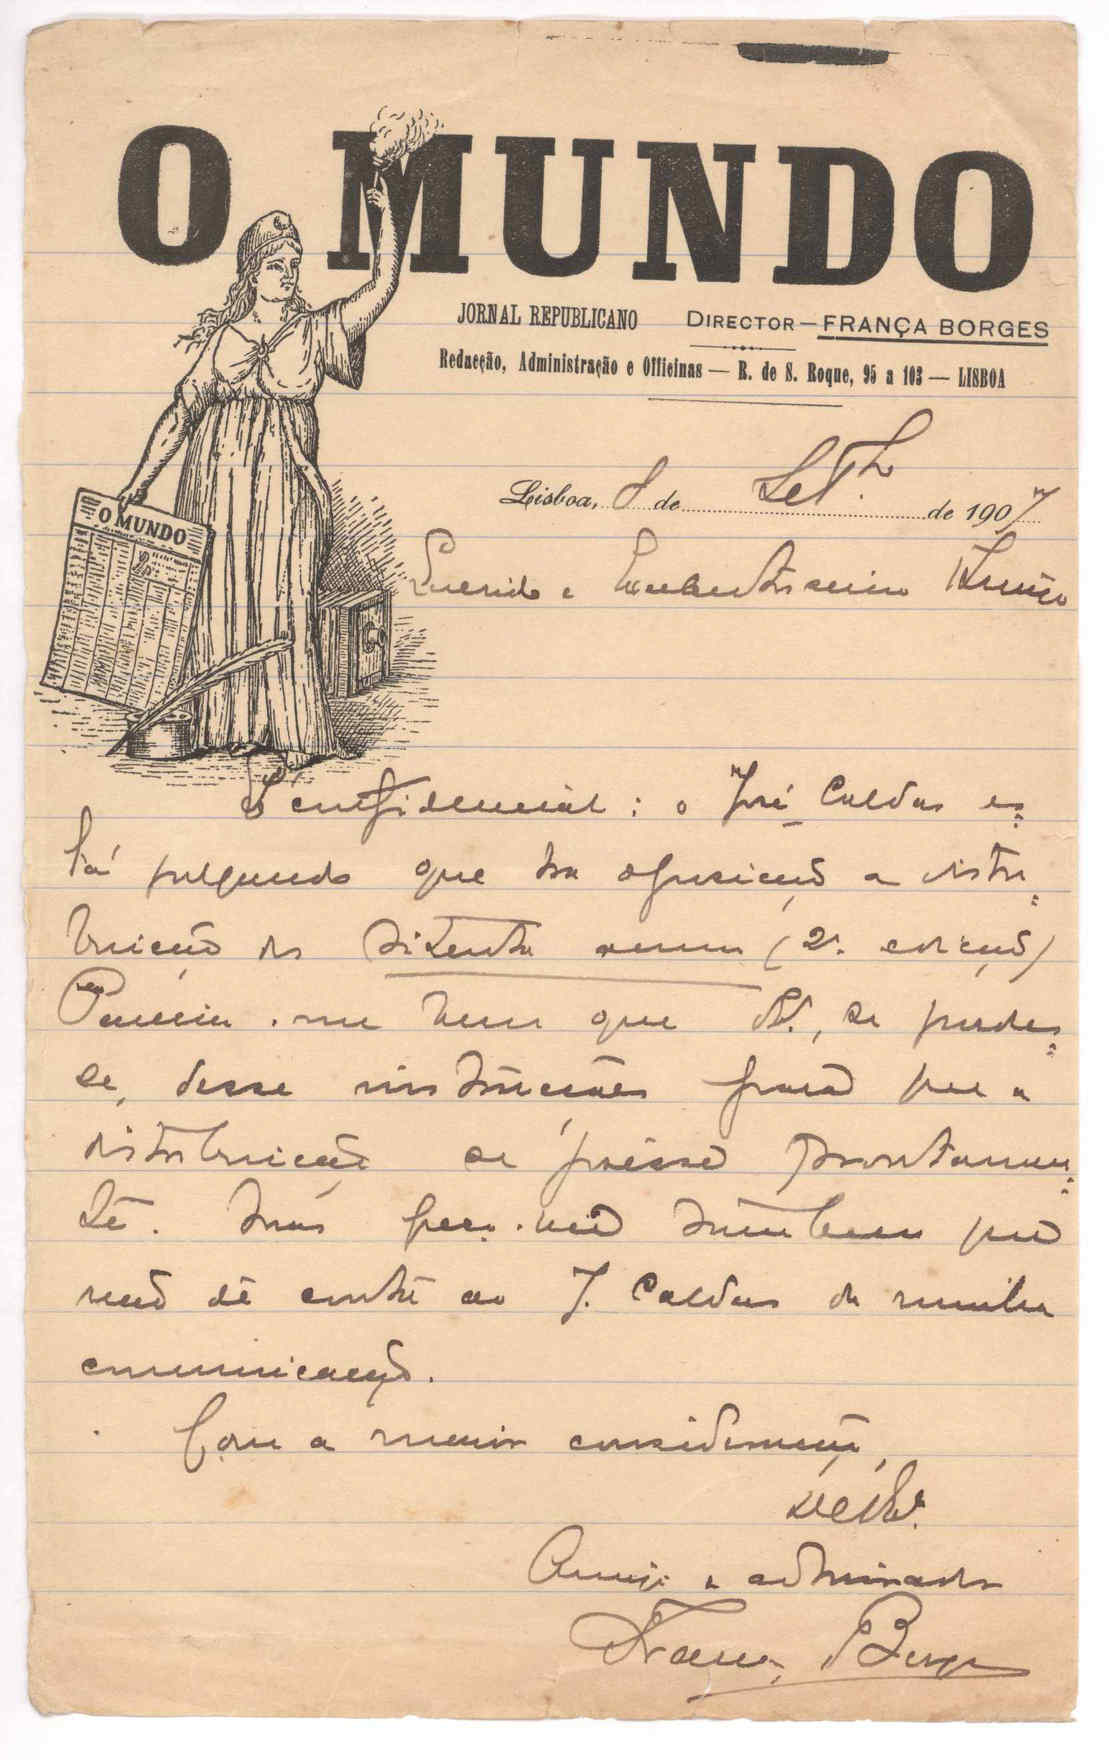 O MUNDO
JORNAL REPUBLICANO DIRECTOR — FRANÇA BORGES
Redacção, Administração e Officinas — R. de S. Roque, 95 a 103 — LISBOA
Lisboa, 8 de Set. de 1907
O MUNDO
Querido e Excelentissimo Amigo
É confidencial: o José Caldas es=
tá julgando que ha oposição a distri=
buição dos Setenta annos (2ª. edição)
Parecia-me bem que V., se pudes=
se, desse instrucções para que a
distribuição se fizesse promptamen=
te. Mas peço-lhe tambem que
não dê conta ao J. Caldas da minha
comunicação.
Com a maior consideração,
De V.
Amigo e admirador
França Borges